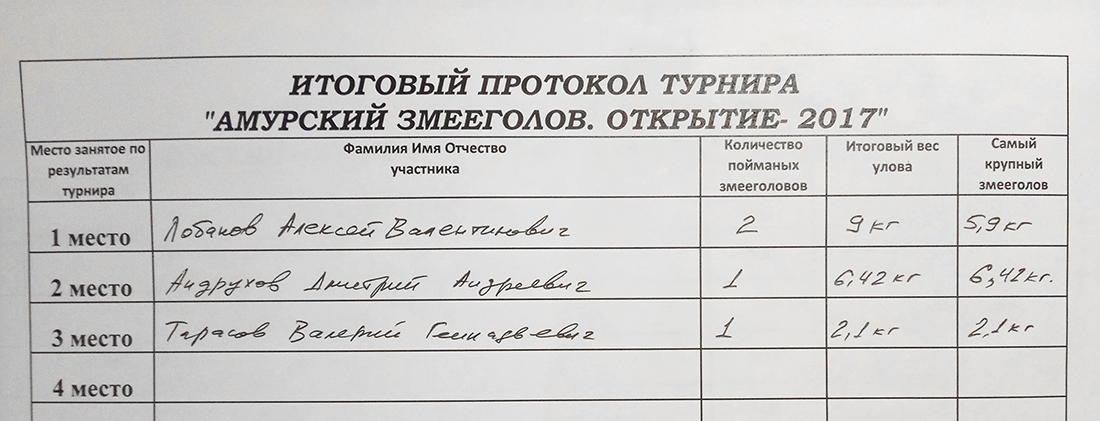 ИТОГОВЫЙ ПРОТОКОЛ ТУРНИРА
"АМУРСКИЙ ЗМЕЕГОЛОВ. ОТКРЫТИЕ- 2017"
Место занятое по результатам турнира Фамилия Имя Отчество участника Количество пойманых змееголовов Итоговый вес улова Самый крупный змееголов
1 место Лобанов Алексей Валентинович 2 9 кг 5,9 кг
2 место Андрухов Дмитрий Андреевич 1 6,42 кг 6,42 кг.
3 место Тарасов Валерий Геннадьевич 1 2,1 кг 2,1 кг
4 место